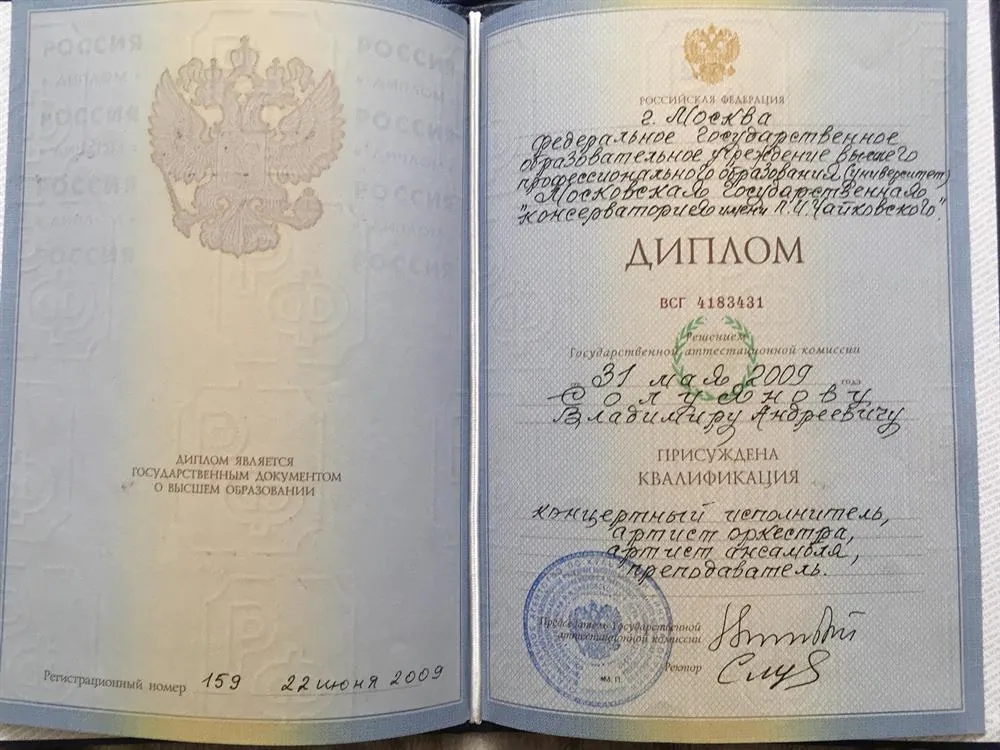 ДИПЛОМ ЯВЛЯЕТСЯ
ГОСУДАРСТВЕННЫМ ДОКУМЕНТОМ
О ВЫСШЕМ ОБРАЗОВАНИИ
Регистрационный номер 159 22 июня 2009
РОССИЙСКАЯ ФЕДЕРАЦИЯ
г. Москва
федеральное государственное
образовательное учреждение высшего
профессионального образования (университет)
Московская государственная
"консерватория имени П.И.Чайковского".
ДИПЛОМ
ВСГ 4183431
Решением
Государственной аттестационной комиссии
31 мая 2009 года
Солуянову
Владимиру Андреевичу
ПРИСУЖДЕНА
КВАЛИФИКАЦИЯ
концертный исполнитель,
артист оркестра,
артист ансамбля,
преподаватель.
Председатель Государственной
аттестационной комиссии
Ректор
М. П.